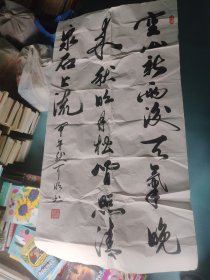 空山新雨後天氣晚
来秋明月松間照清
泉石上流
甲午